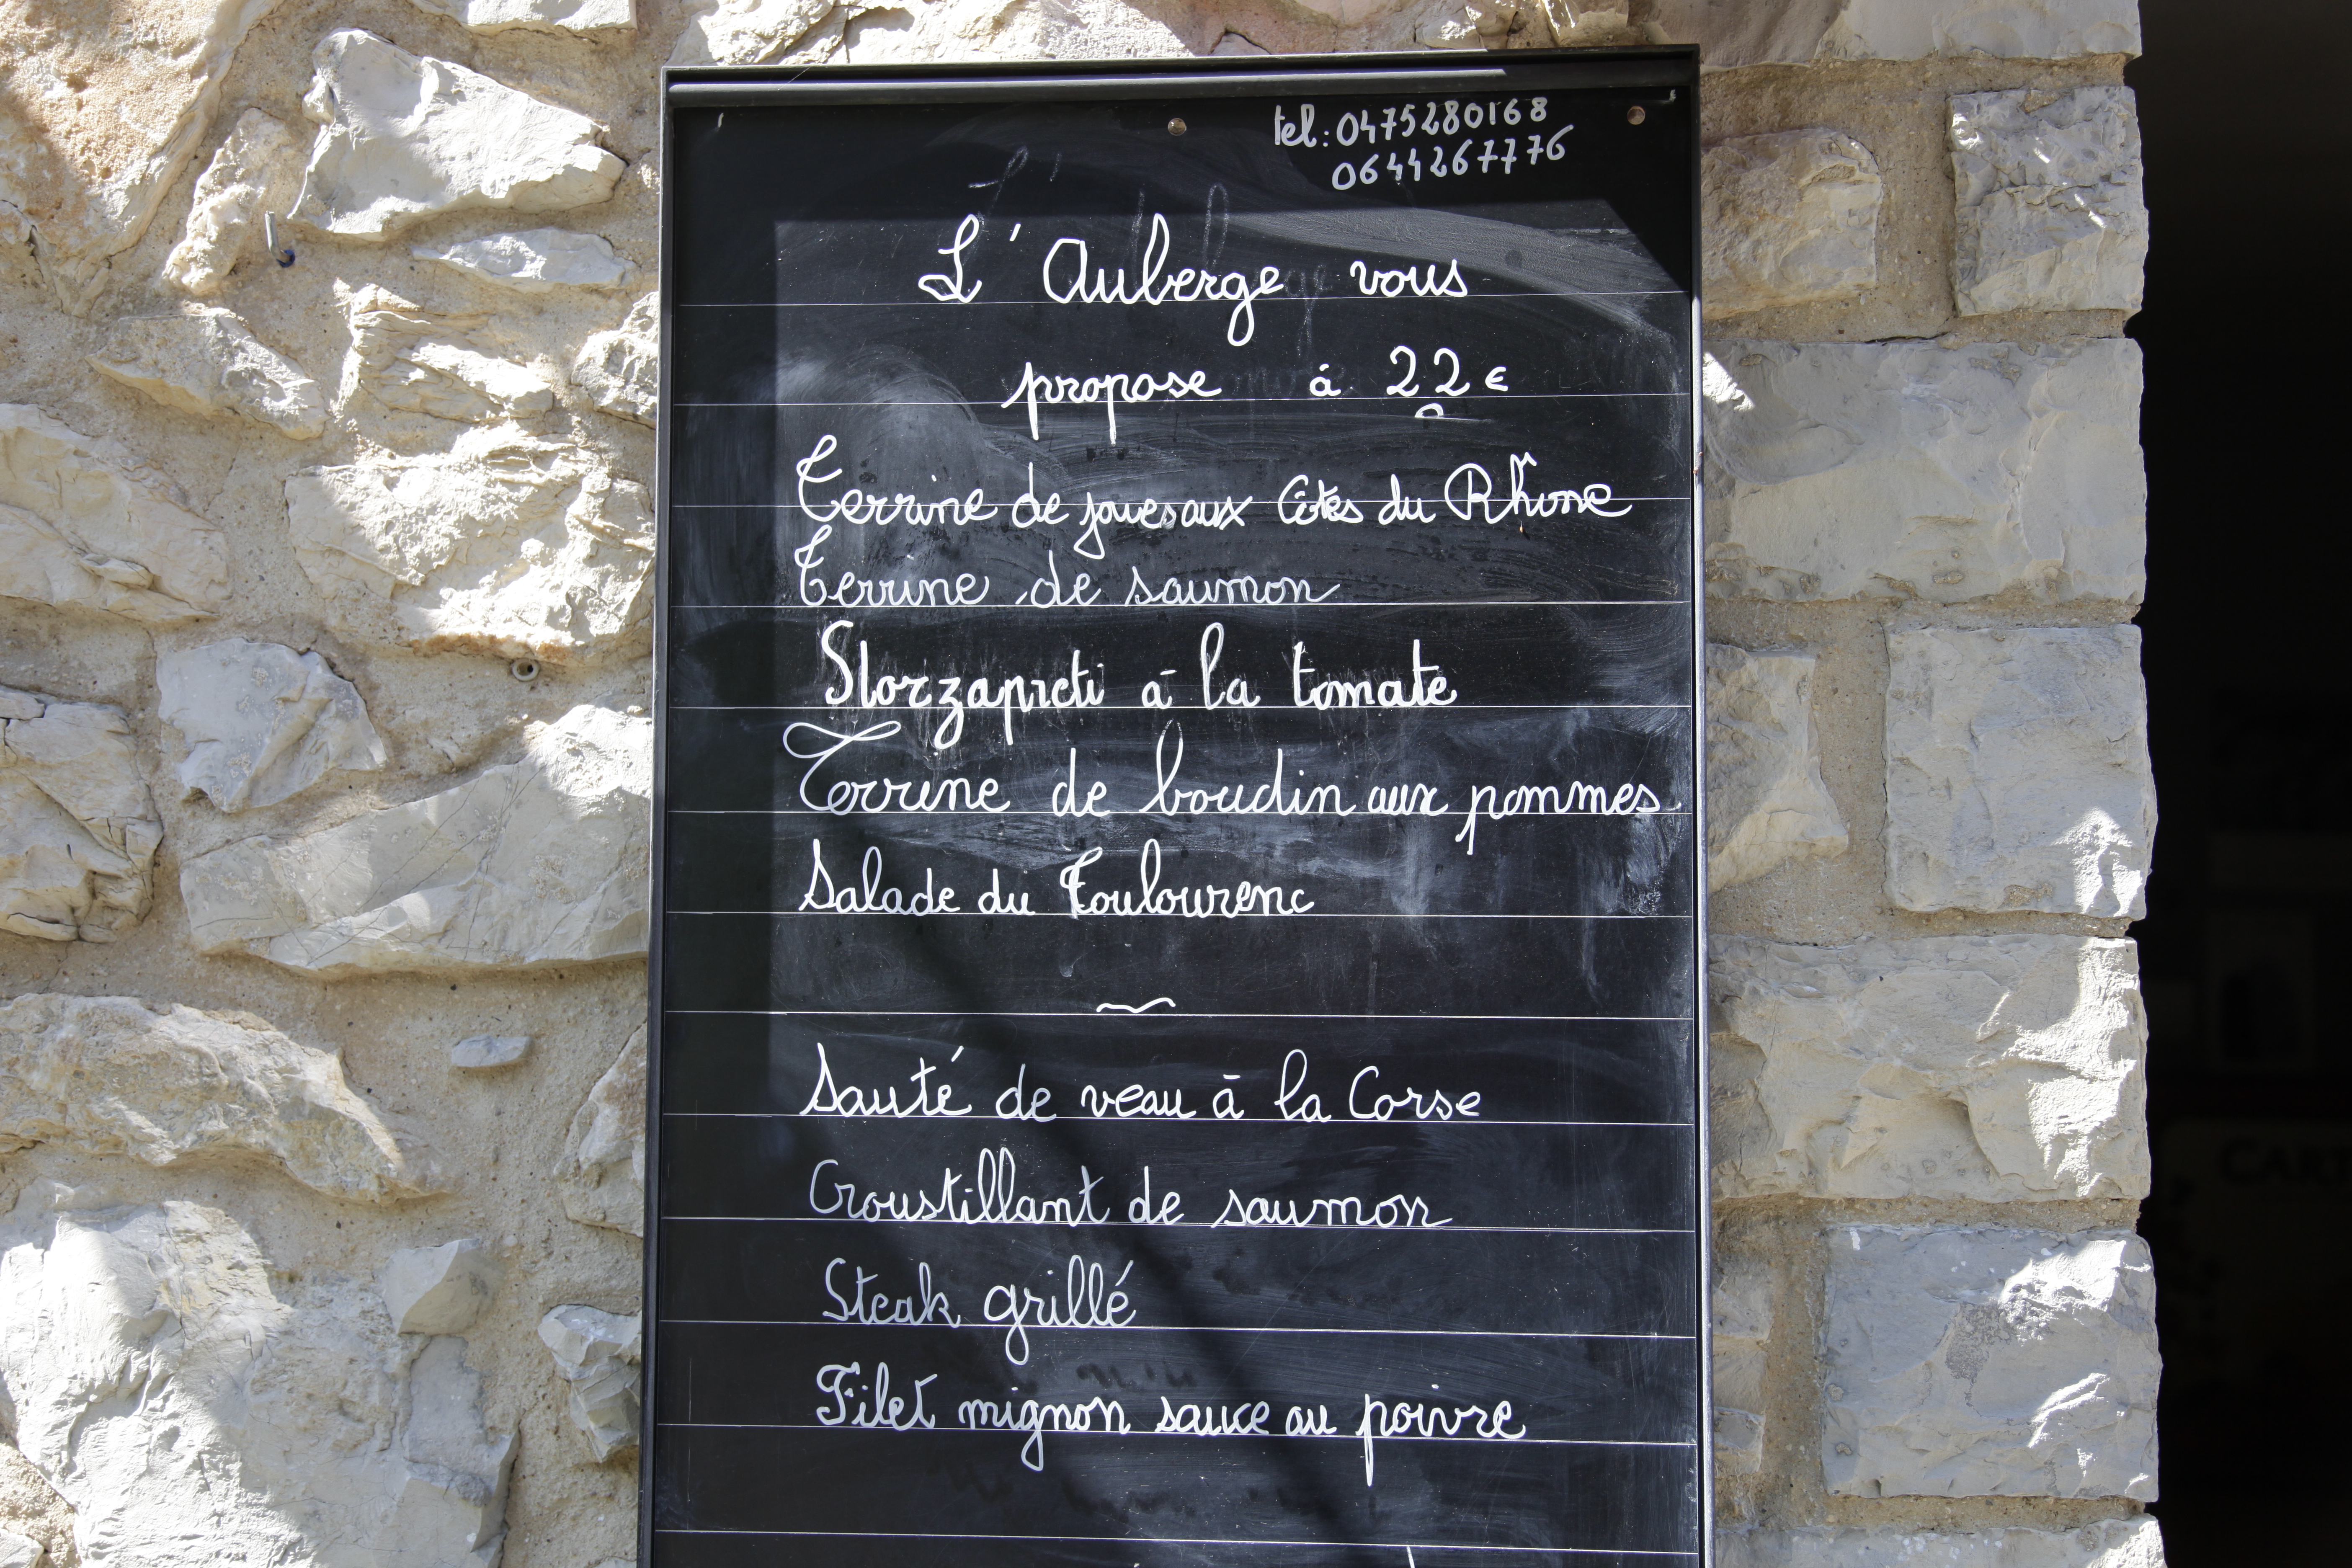 tel: 0475280168
0644267776
L'Auberge vous
propose à 22€
Terrine de joues aux Côtes du Rhône
Terrine de saumon
Storzapreti à la tomate
Terrine de boudin aux pommes
Salade du Toulourenc
Sauté de veau à la Corse
Croustillant de saumon
Steak grillé
Filet mignon sauce au poivre
CART